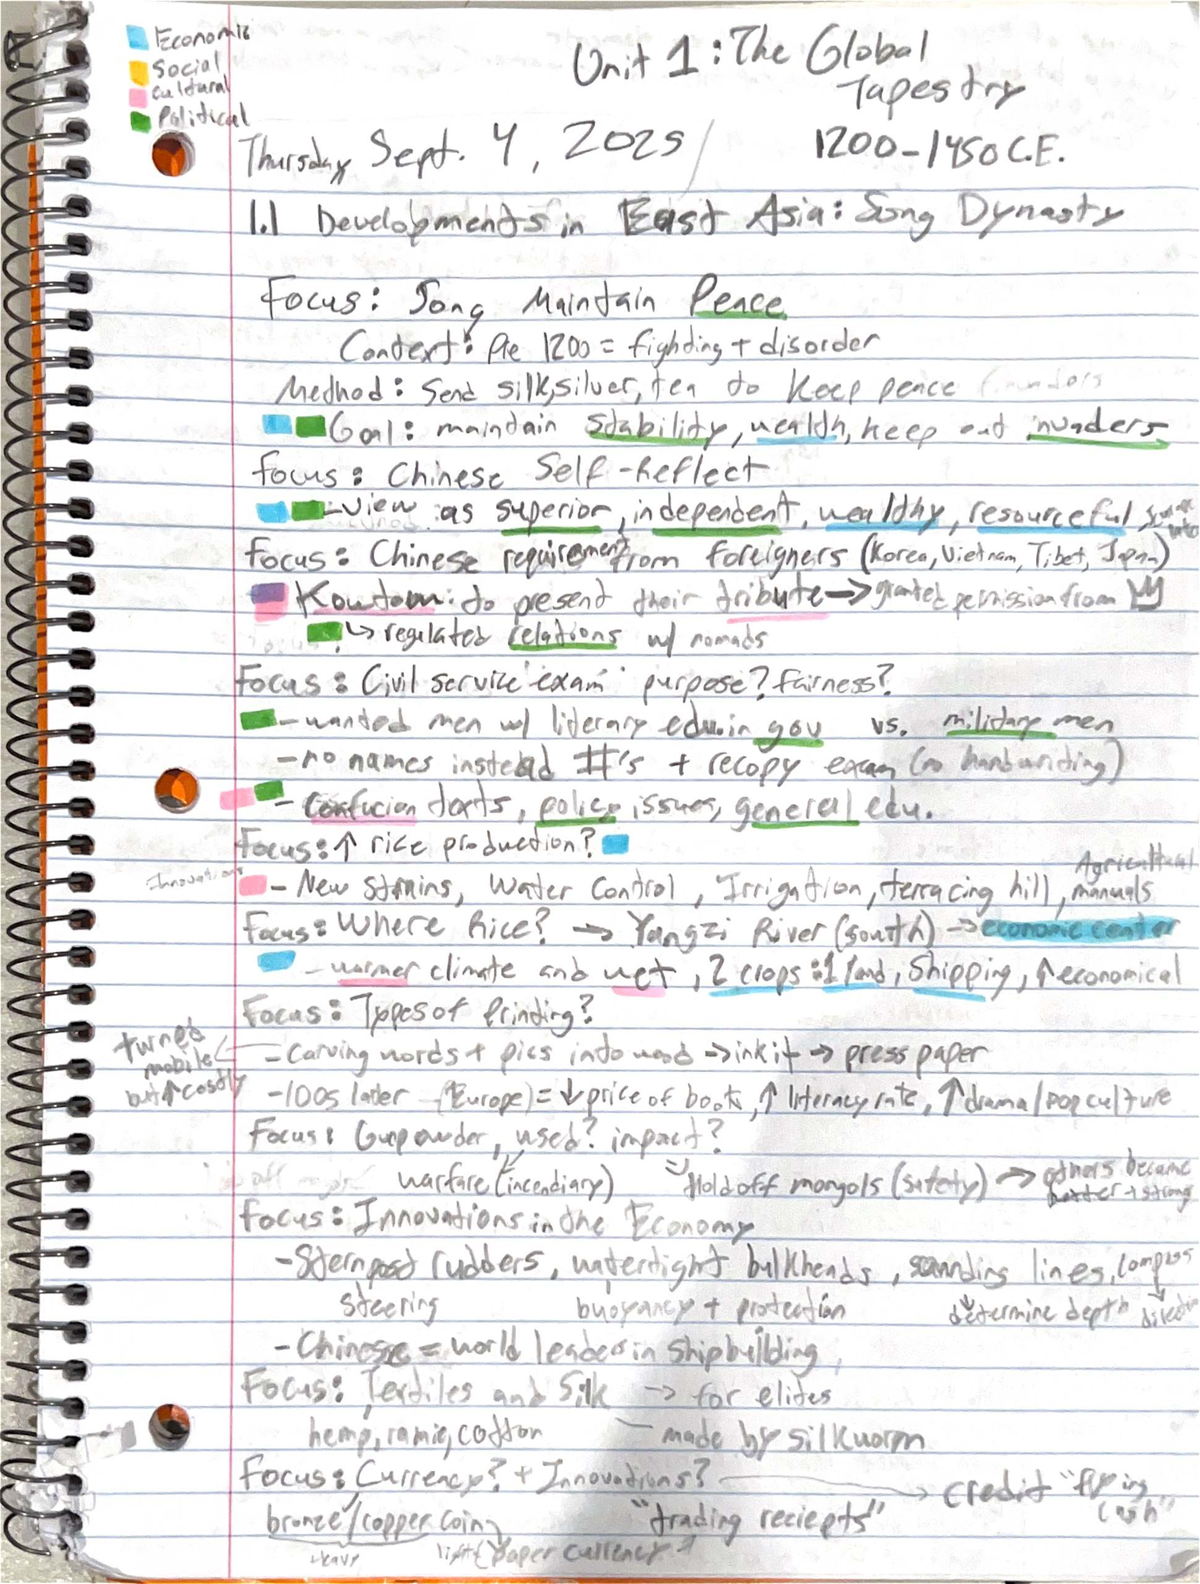 Economic
Social
Cultural
Political
Unit 1: The Global
Tapestry
Thursday Sept. 4, 2025
1200-1450 C.E.
1.1 Developments in East Asia: Song Dynasty
Focus: Song Maintain Peace
Context: Pre 1200 = fighting + disorder
Method: Send silk, silver, tea to keep peace
Goal: maintain stability, wealth, keep out invaders
Focus: Chinese Self-Reflect
-view as superior, independent, wealthy, resourceful,
Focus: Chinese requirement from foreigners (Korea, Vietnam, Tibet, Japan)
Kowtow: to present their tribute → granted permission from
↳ regulated relations w/ nomads
Focus: Civil service "exam" purpose? Fairness?
- wanted men w/ literary edu. in gov vs. military men
- no names instead #'s + recopy exam (no handwriting)
- Confucian texts, policy issues, general edu.
Focus: ↑ rice production?
Innovations
Agricultural
- New strains, Water Control, Irrigation, terracing hill, manuals
Focus: Where Rice? → Yangzi River (south) → economic center
- warmer climate and wet, 2 crops : 1 land, Shipping, ↑ economical
Focus: Types of Printing?
turned mobile but ↑ costly
- Carving words + pics into wood → ink it → press paper
- 100s later (Europe) = ↓ price of books, ↑ literacy rate, ↑ drama/pop culture
Focus: Gunpowder, used? impact?
warfare (incendiary) Hold off mongols (safety) → others became
better + strong
Focus: Innovations in the Economy
- Sternpost rudders, watertight bulkheads, sounding lines, compass
steering buoyancy + protection determine depth
- Chinese = world leader in shipbuilding
Focus: Textiles and Silk → for elites
hemp, ramie, cotton - made by silkworm
Focus: Currency? + Innovations? → credit "flying
cash"
bronze/copper coin "trading reciepts"
heavy light paper currency